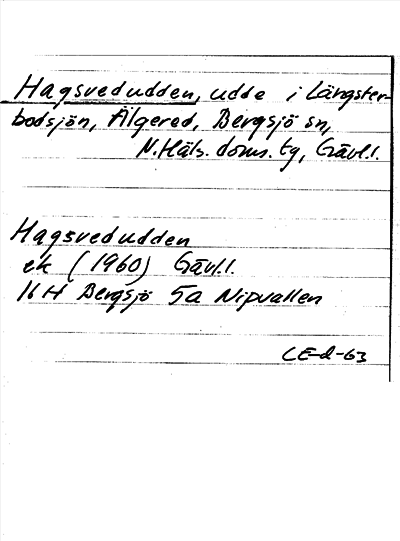 Hagsvedudden, udde i Långster-
bodsjön, Älgered, Bergsjö sn,
N. Häls. doms. tg, Gävl.l.
Hagsvedudden
ek (1960) Gävl.l.
16H Bergsjö 5a Nipvallen
CE-d-63